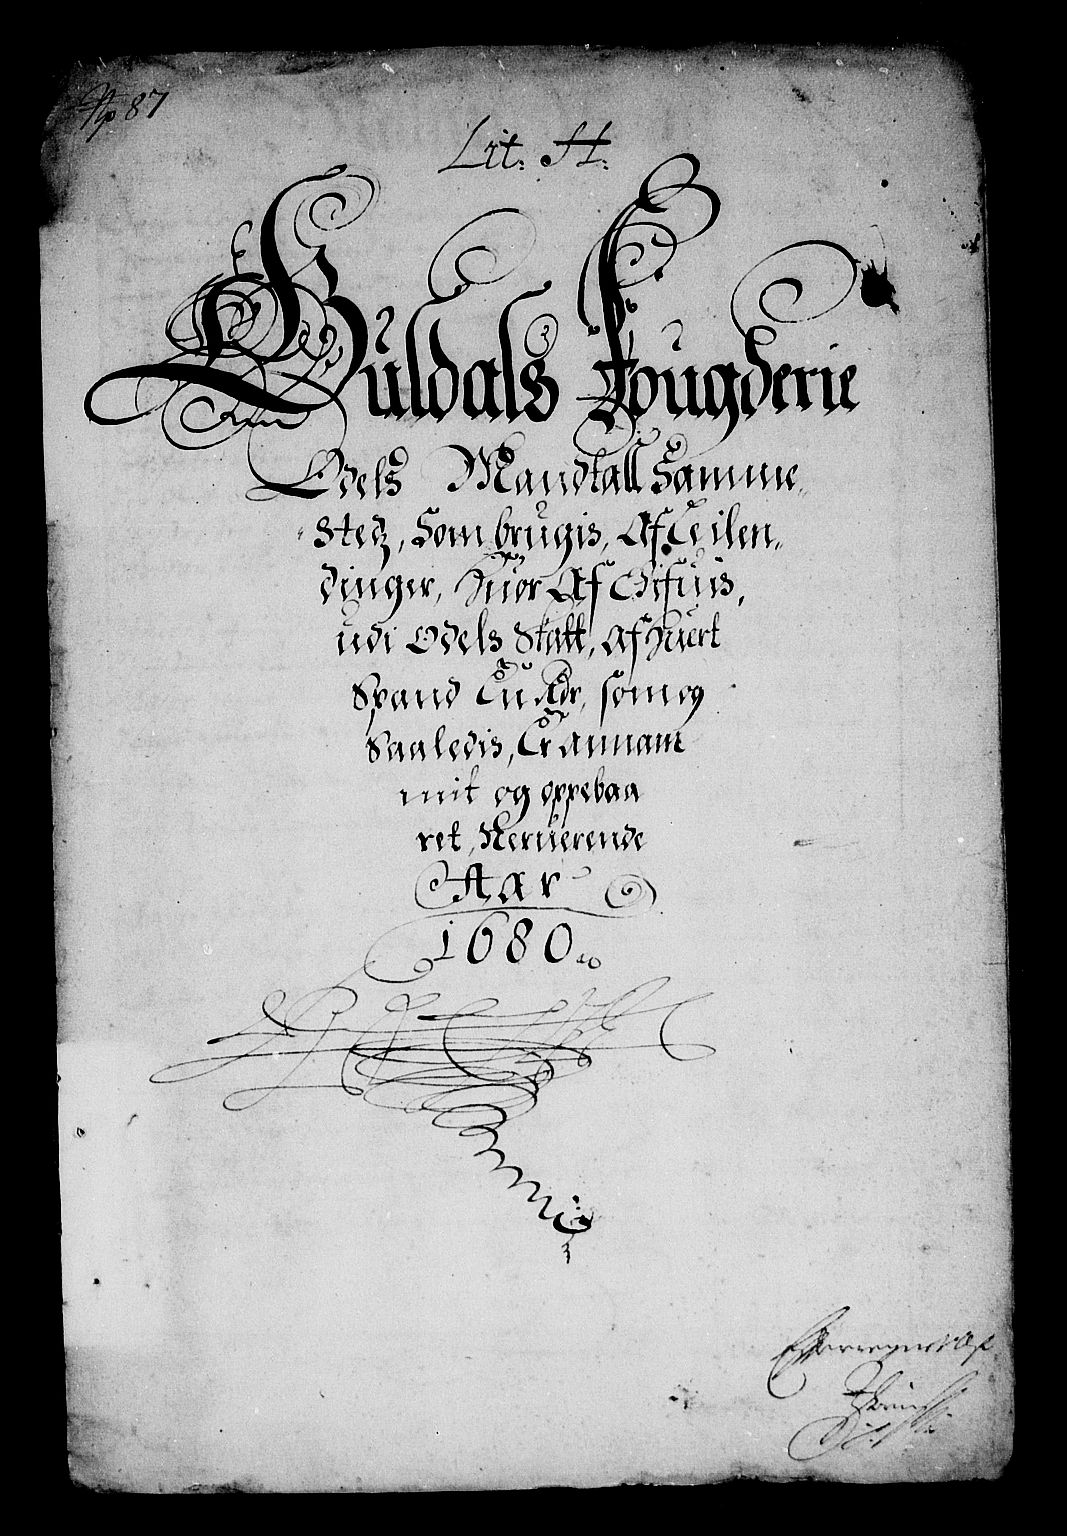 No 87
Lit: H:
Guldals Fougderie
Odels Mandtall Samme
Stedz, Som brugis, Af Ceilen
dinger, Huor Af Gifuis,
udi Odels Skatt, af Huert
Spand Tu Mdr, som og
Saaledis, Er annam
mit og oppebaa
ret, Nerverende
Aar
1680